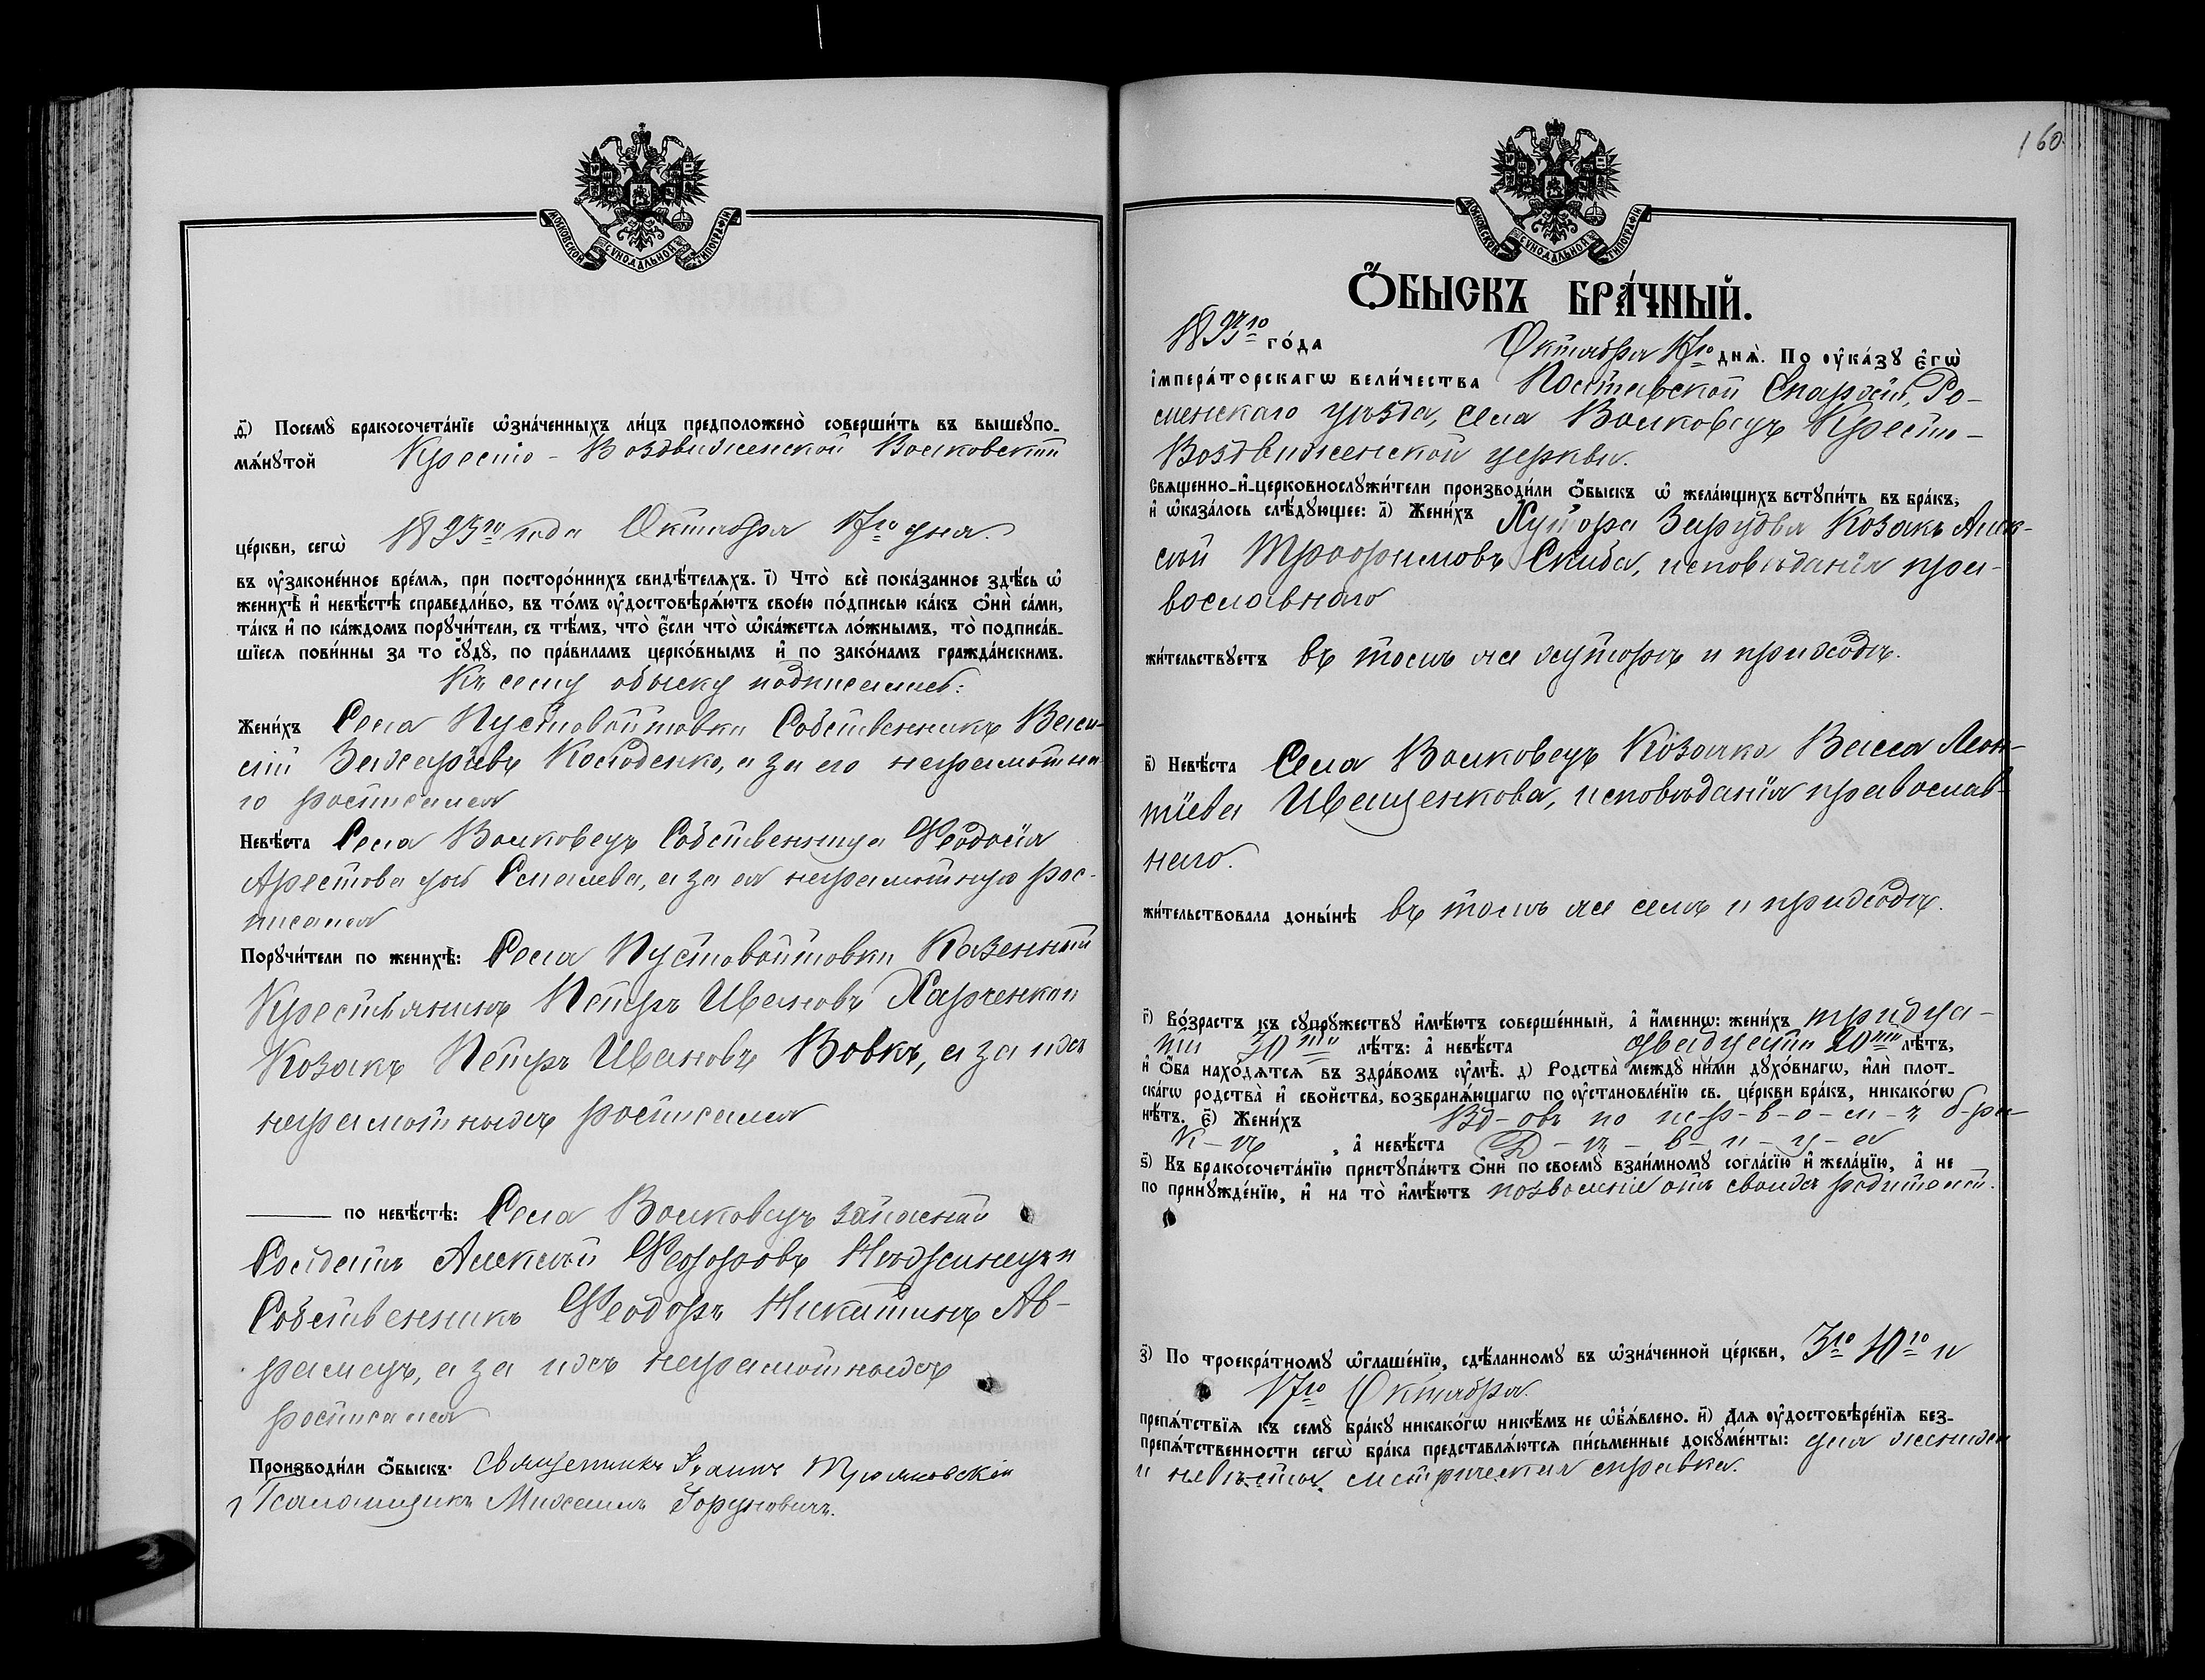 МОСКОВСКОЙ СѴНОДАЛЬНОЙ ТИПОГРАФІИ
д҃) Посемꙋ̀ бракосочета́нїе ѡ҆зна́ченныхъ ли́цъ предположено̀ соверши́ть въ вышеꙋпо-
мѧ́нꙋтой Кресто-Воздвиженской Волковской
це́ркви, сегѡ̀ 1893го года Октября 17го дня.
въ ᲂу҆законе́нное вре́мѧ, при посторо́ннихъ свидѣ́телѧхъ. і҃) Что̀ всѐ пока́занное здѣ́сь ѡ҆
женихѣ̀ и҆ невѣ́стѣ справедли́во, въ то́мъ ᲂу҆достовѣрѧ́ютъ свое́ю по́дписью ка́къ ѻ҆нѝ са́ми,
та́къ и҆ по ка́ждомъ порꙋчи́тели, съ тѣ́мъ, что̀ є҆́сли что̀ ѡ҆ка́жется ло́жнымъ, то̀ подписа́в-
шїеся пови́нны за то̀ сꙋдꙋ̀, по пра́виламъ церко́внымъ и҆ по зако́намъ гражда́нскимъ.
Къ сему обыску подписались:
Жени́хъ Села Пустовойтовки Собственникъ Васи-
лій Захаріевъ Колоденко, а за его неграмотна-
го росписался
Невѣ́ста Села Волковецъ Собственница Феодосія
Арестова, а за ея неграмотную рос-
писался
Порꙋчи́тели по женихѣ̀: Села Пустовойтовки Казенный
Крестьянинъ Петръ Ивановъ Харченко и
Козакъ Петръ Ивановъ Вовкъ, а за ихъ
неграмотныхъ росписался
по невѣ́стѣ: Села Волковецъ запасный
Солдатъ Алексѣй Феодоровъ и
Собственникъ Феодоръ Никитинъ Ав-
рамецъ, а за ихъ неграмотныхъ
росписался
Производи́ли ѻ҆́быскъ: Священникъ Іоаннъ
и Псаломщикъ Михаилъ Горуновичъ.
160.
МОСКОВСКОЙ СѴНОДАЛЬНОЙ ТИПОГРАФІИ
Ѻ҆́БЫСКЪ БРА́ЧНЫЙ.
1893го го́да Октября 17го днѧ̀. По ᲂу҆ка́зꙋ є҆гѡ̀
і҆мпера́торскагѡ вели́чества Полтавской Епархіи, Ро-
менскаго уѣзда, села Волковецъ Кресто-
Воздвиженской церкви.
Свѧщенно-и҆-церковнослꙋжи́тели производи́ли ѻ҆́быскъ ѡ҆ жела́ющихъ встꙋпи́ть въ бра́къ,
и҆ ѡ҆каза́лось слѣ́дꙋющее: а҃) Жени́хъ Хутора Зарудья Козакъ Алек-
сѣй Трофимовъ Скиба, исповѣданія пра-
вославнаго
жи́тельствꙋетъ въ томъ же хуторѣ и приходѣ.
в҃) Невѣ́ста Села Волковецъ Козачка Васса Леон-
тіева Иващенкова, исповѣданія православ-
наго.
жи́тельствовала доны́нѣ въ томъ же селѣ и приходѣ.
г҃) Во́зрастъ къ сꙋпрꙋ́жествꙋ и҆мѣ́ютъ соверше́нный, а҆ и҆́меннѡ: жени́хъ тридца-
ти 30ти лѣ́тъ: а҆ невѣ́ста двадцати 20ти лѣ́тъ,
и҆ ѻ҆́ба нахо́дѧтсѧ въ здра́вомъ ᲂу҆мѣ̀. д҃) Родства̀ междꙋ̀ ни́ми дꙋхо́внагѡ, и҆лѝ плот-
ска́гѡ родства̀ и҆ свойства̀, возбранѧ́ющагѡ по ᲂу҆становле́нїю св. це́ркви бра́къ, никако́гѡ
нѣ́тъ. є҃) Жени́хъ Вд-овъ по пе-р-в-о-м-ъ б-ра-
к-ѣ, а҆ невѣ́ста Д-ѣ-в-и-ц-а
ѕ҃) Къ бракосочета́нїю пристꙋпа́ютъ ѻ҆нѝ по своемꙋ̀ взаи́мномꙋ согла́сїю и҆ жела́нїю, а҆ не
по принꙋжде́нїю, и҆ на то̀ и҆мѣ́ютъ позволеніе отъ своихъ родителей.
з҃) По троекра́тномꙋ ѡ҆глаше́нїю, сдѣ́ланномꙋ въ ѡ҆зна́ченной це́ркви, 3го 10го и
17го Октября.
препѧ́тствїѧ къ семꙋ̀ бра́кꙋ никако́гѡ никѣ́мъ не ѡ҆б̾ѧ́влено. и҃) Для ᲂу҆достовѣре́нїѧ без-
препѧ́тственности сегѡ̀ бра́ка представлѧ́ютсѧ пи́сьменные докꙋме́нты: для жениха
и невѣсты метрическая справка.